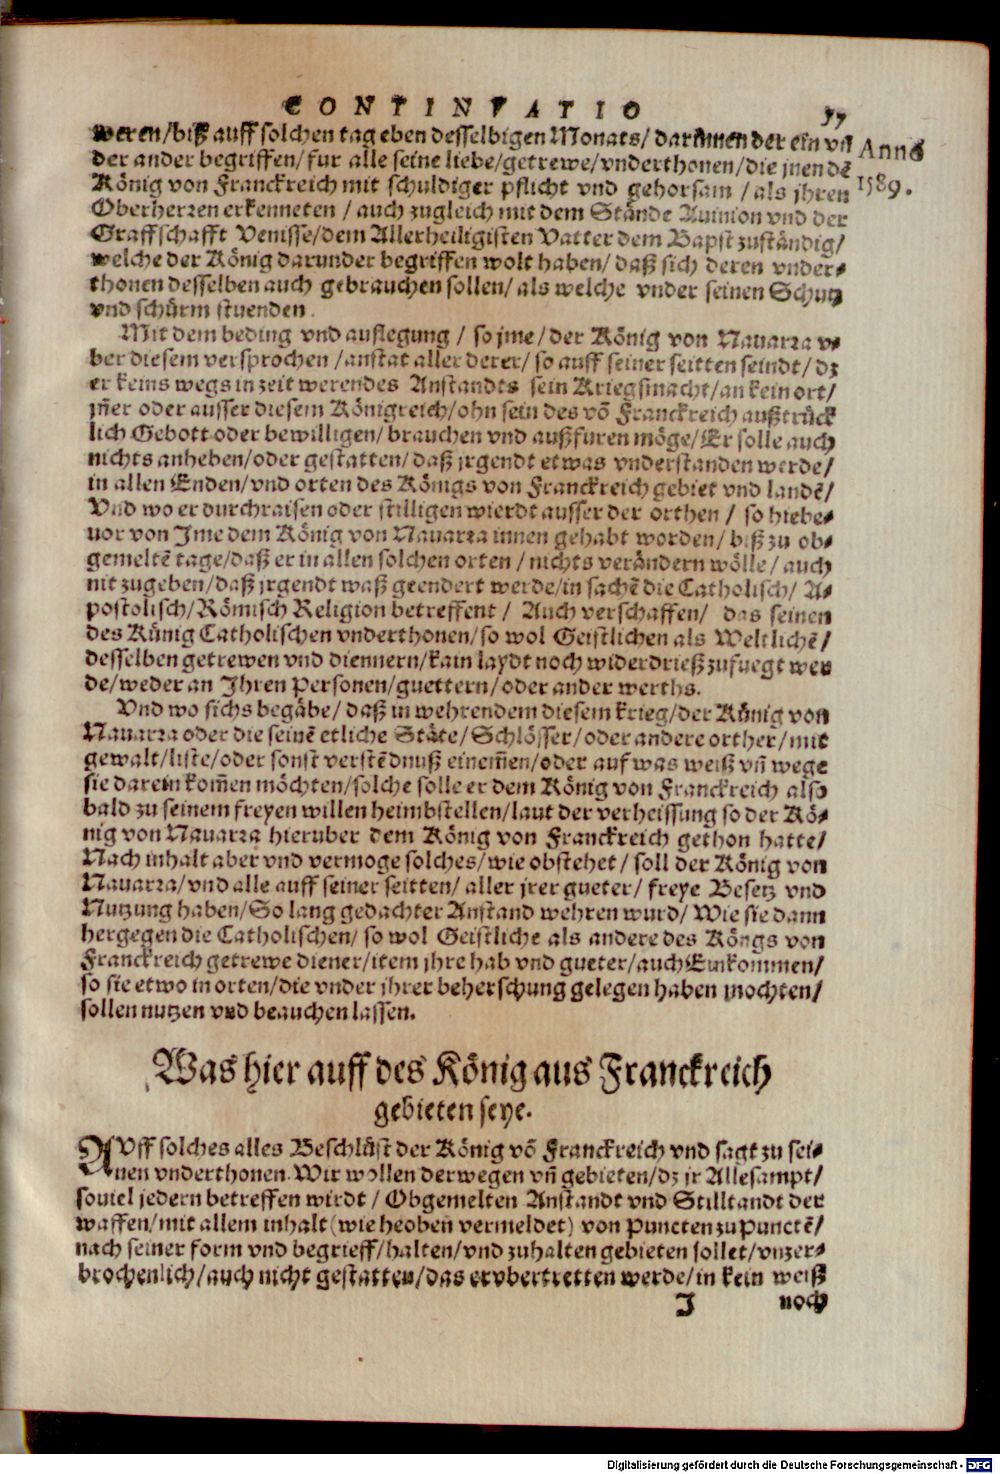 CONTINVATIO
37
weren/biß auff solchen tag eben desselbigen Monats/ dariñen der ein vñ
Anno
1589.
der ander begriffen/ fur alle seine liebe/getrewe/vnderthonen/die jnen dē
König von Franckreich mit schuldiger pflicht vnd gehorsam / als jhren
Oberherren erkenneten / auch zugleich mit dem Stånde Auinion vnd der
Graffschafft Venisse/dem Allerheiligisten Vatter dem Bapst zuståndig/
welche der König darunder begriffen wolt haben/ daß sich deren vnder-
thonen desselben auch gebrauchen sollen/ als welche vnder seinen Schutz
vnd schürm stuenden.
Mit dem beding vnd auflegung / so jme/der König von Nauarra v-
ber diesem versprochen /anstat aller derer/ so auff seiner seitten seindt/ dz
er keins wegs in zeit werendes Anstandts sein Kriegsmacht/an kein ort/
jñer oder ausser diesem Königreich/ohn sein des vō Franckreich außtrück
lich Gebott oder bewilligen/ brauchen vnd außfuren möge/Er solle auch
nichts anheben/oder gestatten/ daß jrgendt etwas vnderstanden werde/
in allen Enden/vnd orten des Königs von Franckreich gebiet vnd landē/
Vnd wo er durchraisen oder stilligen wierdt ausser der orthen / so hiebe-
uor von Jme dem König von Nauarra innen gehabt worden/ biß zu ob-
gemeltē tage/daß er in allen solchen orten / nichts verändern wölle / auch
nit zugeben/daß jrgendt waß geendert werde/in sachē die Catholisch/ A-
postolisch/Römisch Religion betreffent / Auch verschaffen/ das seinen
des Künig Catholischen vnderthonen/so wol Geistlichen als Weltlichē/
desselben getrewen vnd diennern/kain laydt noch widerdrieß zufuegt wer
de/weder an Jhren Personen/guettern/oder ander werths.
Vnd wo sichs begäbe/ daß in wehrendem diesem krieg/der Künig von
Nauarra oder die seinē etliche Stäte/Schlösser/oder andere orther/mit
gewalt/liste/oder sonst verstēdnuß einemen/oder auf was weiß vñ wege
sie darein komen möchten/solche solle er dem König von Franckreich also
bald zu seinem freyen willen heimbstellen/laut der verheissung so der Kö-
nig von Nauarra hieruber dem König von Franckreich gethon hatte/
Nach inhalt aber vnd vermoge solches/wie obstehet/ soll der König von
Nauarra/vnd alle auff seiner seitten/ aller jrer gueter/ freye Besetz vnd
Nutzung haben/So lang gedachter Anstand wehren wurd/ Wie sie dann
hergegen die Catholischen/ so wol Geistliche als andere des Köngs von
Franckreich getrewe diener/item jhre hab vnd gueter/auch Einkommen/
so sie etwo in orten/die vnder jhrer beherschung gelegen haben mochten/
sollen nutzen vnd beauchen lassen.
Was hier auff des König aus Franckreich
gebieten seye.
AVff solches alles Beschlüst der König vō Franckreich vnd sagt zu sei-
nen vnderthonen. Wir wollen derwegen vñ gebieten/dz jr Allesampt/
souiel jedern betreffen wirdt / Obgemelten Anstandt vnd Stilltandt der
waffen/mit allem inhalt (wie heoben vermeldet) von Puncten zu Punctē/
nach seiner form vnd begrieff/halten/vnd zuhalten gebieten sollet/vnzer-
brochenlich/auch nicht gestatten/das er vbertretten werde/in kein weiß
J
noch
Digitalisierung gefördert durch die Deutsche Forschungsgemeinschaft - DFG